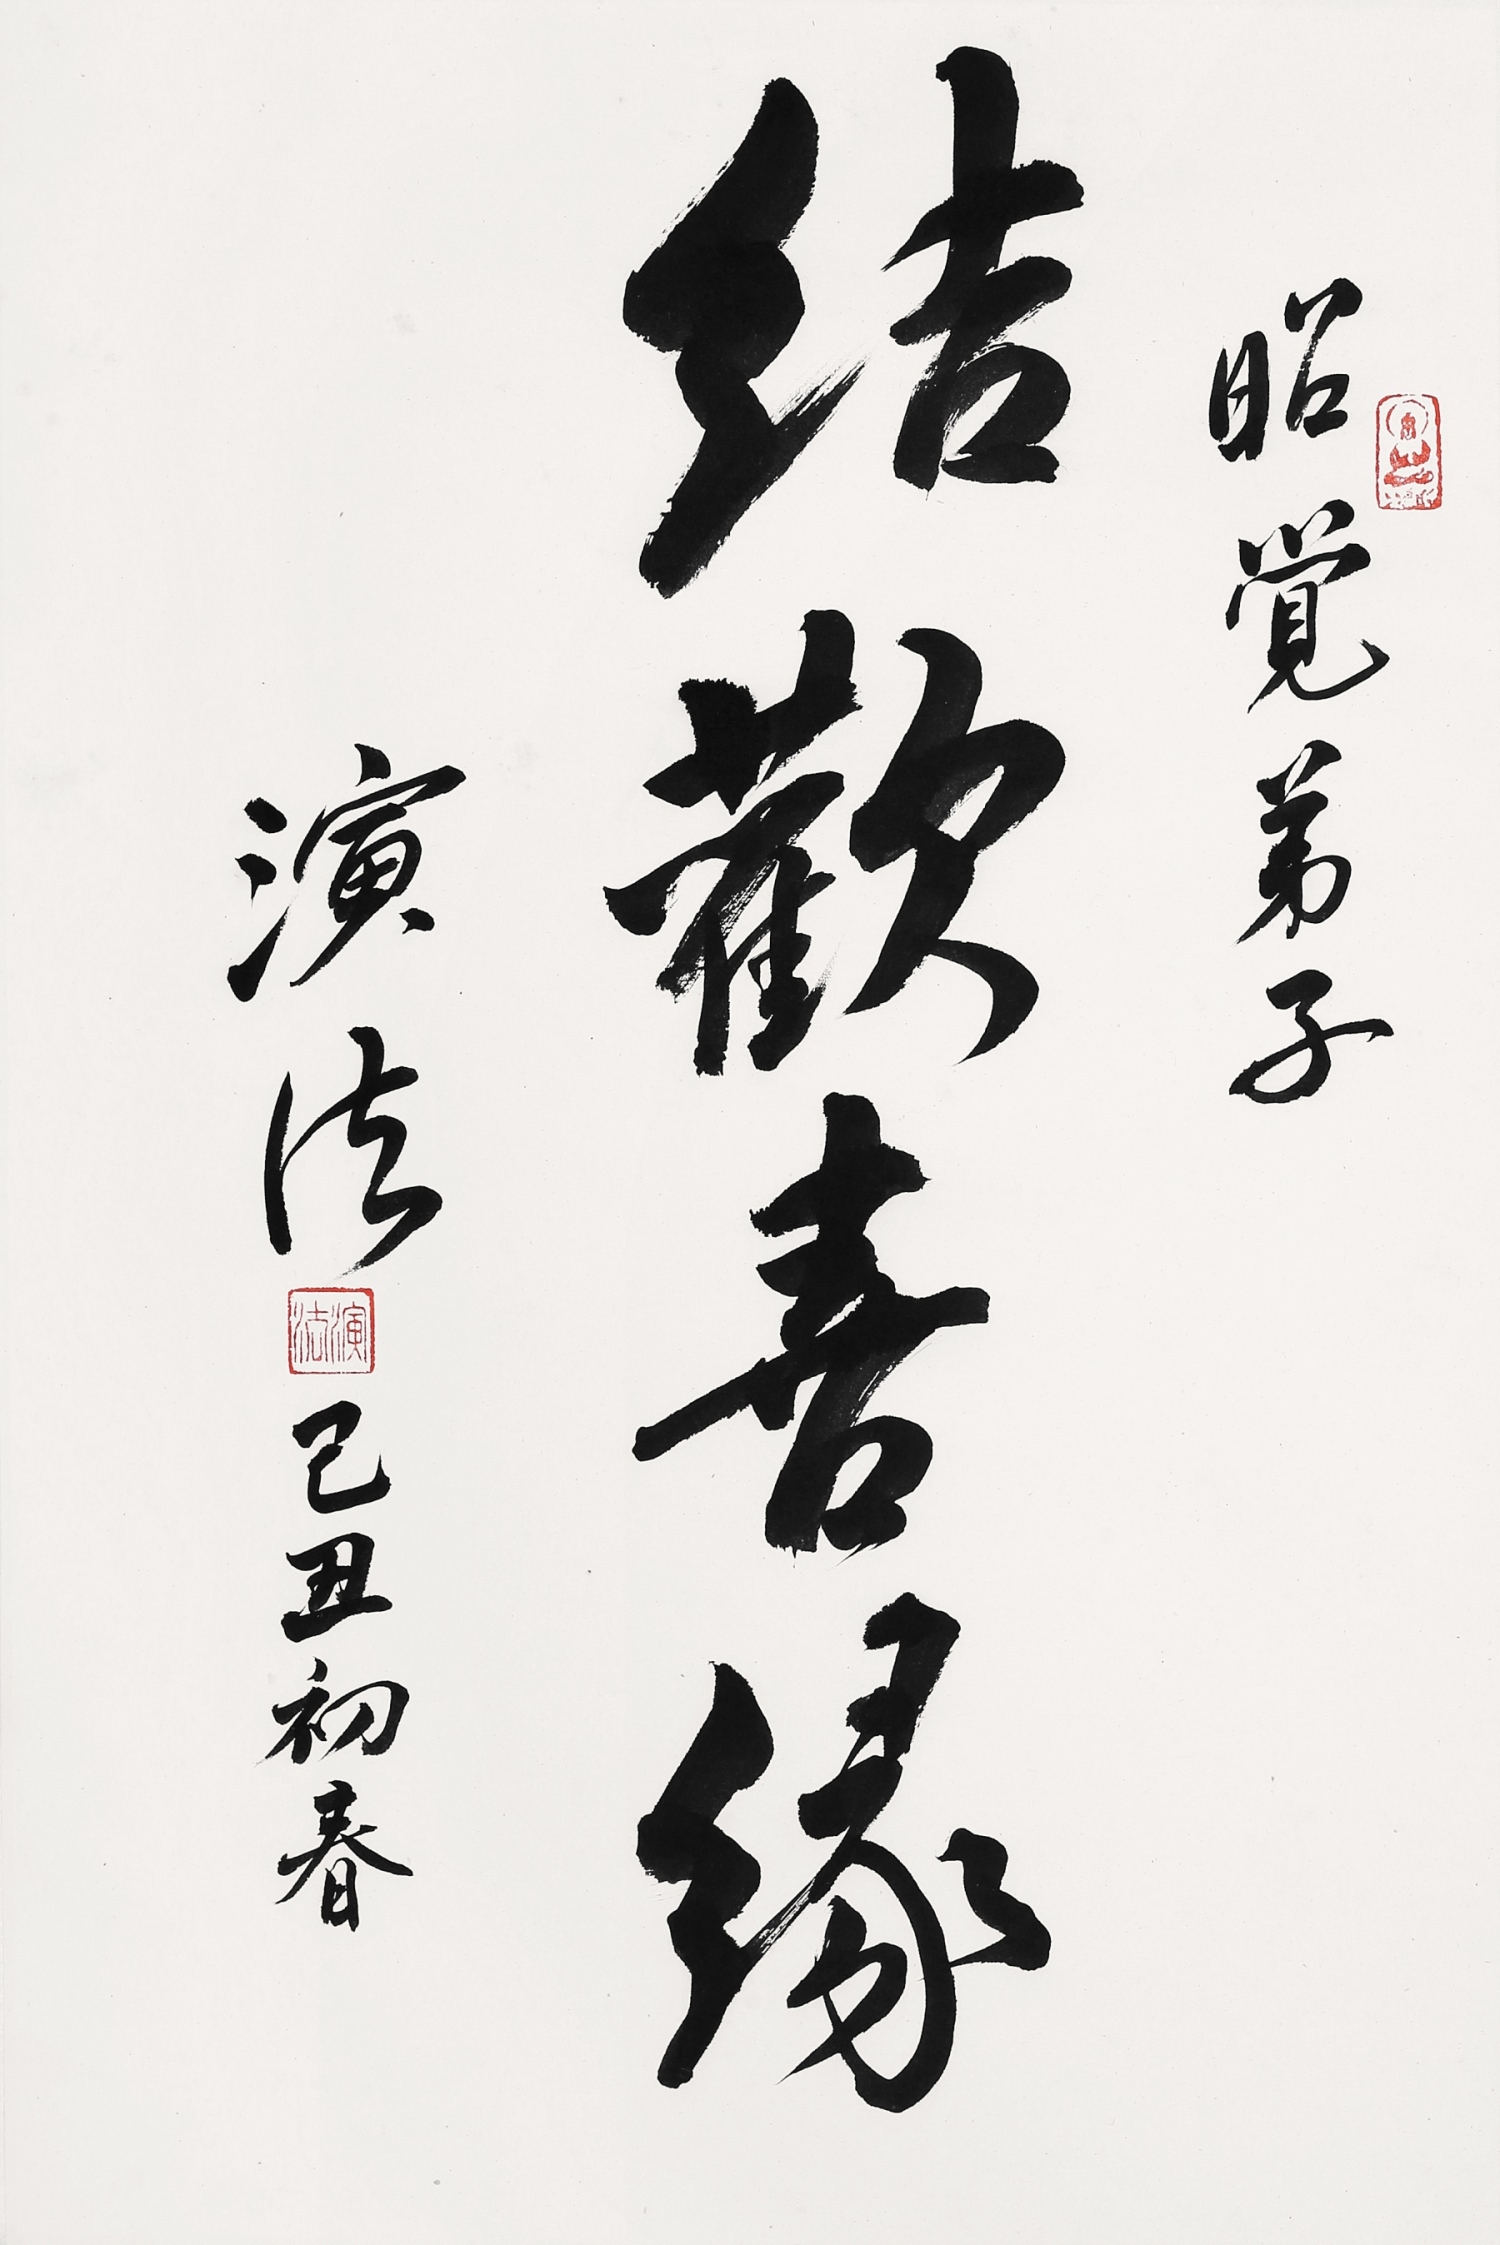 昭覺弟子
結歡喜緣
演法
演法
己丑初春